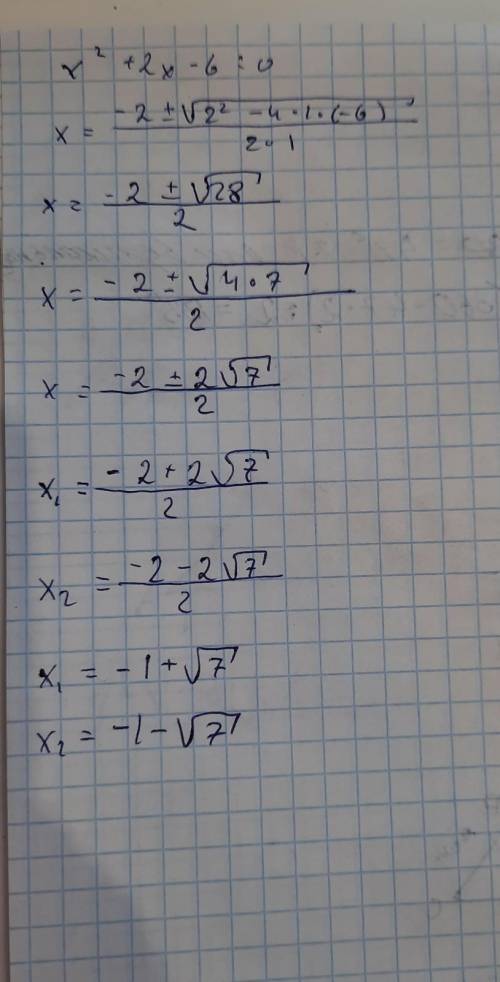 x² + 2x - 6 = 0
x = (-2 ± √(2² - 4 · 1 · (-6))) / (2 · 1)
x = (-2 ± √28) / 2
x = (-2 ± √(4 · 7)) / 2
x = (-2 ± 2√7) / 2
x₁ = (-2 + 2√7) / 2
x₂ = (-2 - 2√7) / 2
x₁ = -1 + √7
x₂ = -1 - √7